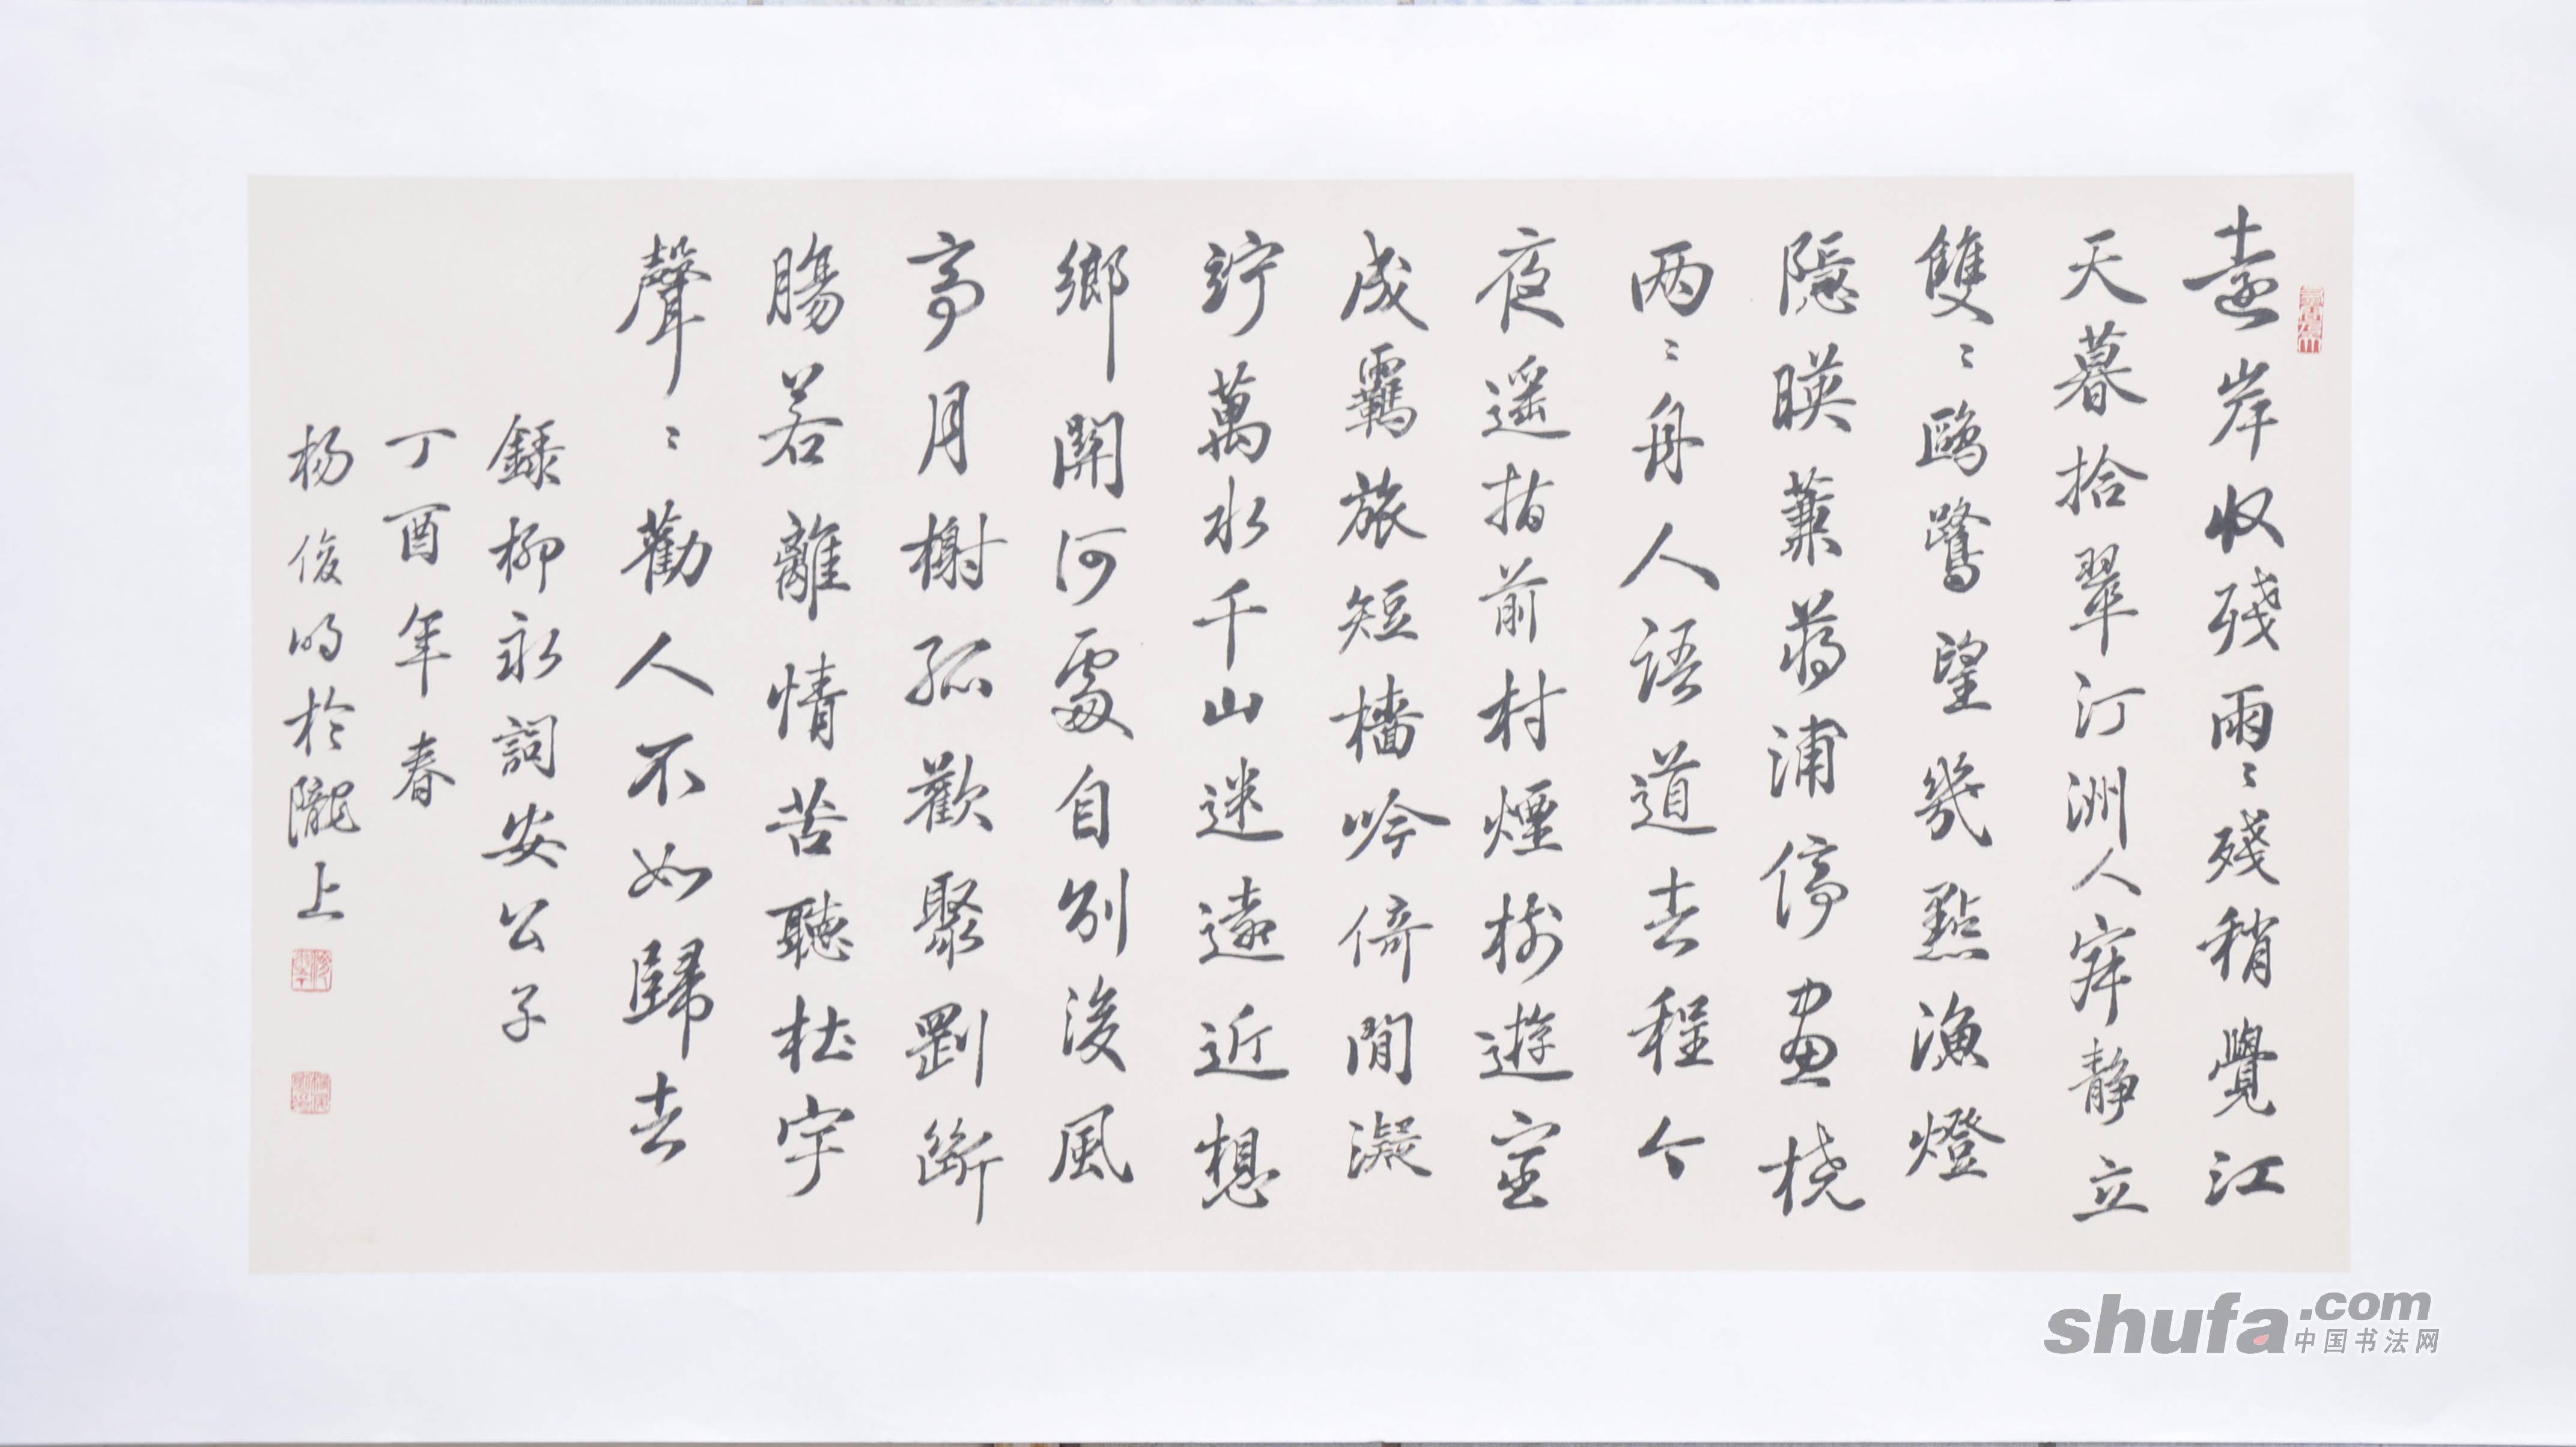 遠岸收殘雨〻殘稍覺江
天暮拾翠汀洲人寂静立
雙〻鷗鷺望幾點漁燈
隱暎蒹蔣浦停畫橈
两〻舟人語道去程今
夜遥指前村煙樹遊宦
成羈旅短檣吟倚閒凝
竚萬水千山迷遠近想
鄉關何處自别後風
亭月榭孤歡聚剛斷
腸若離情苦聽杜宇
聲〻勸人不如歸去
錄柳永詞安公子
丁酉年春
杨俊明於隴上
shufa.com
中国书法网